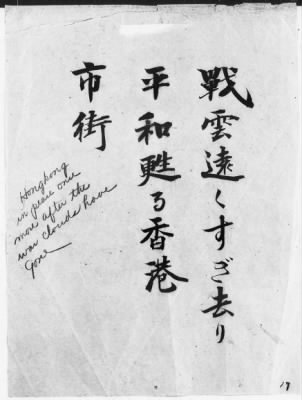 戰雲遠くすぎ去り
平和甦る香港
市街
Hongkong
in peace once
more after the
war clouds have
gone
17